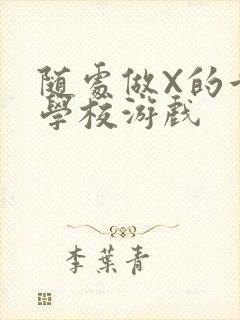 随處做X的
學校游戲
李葉青